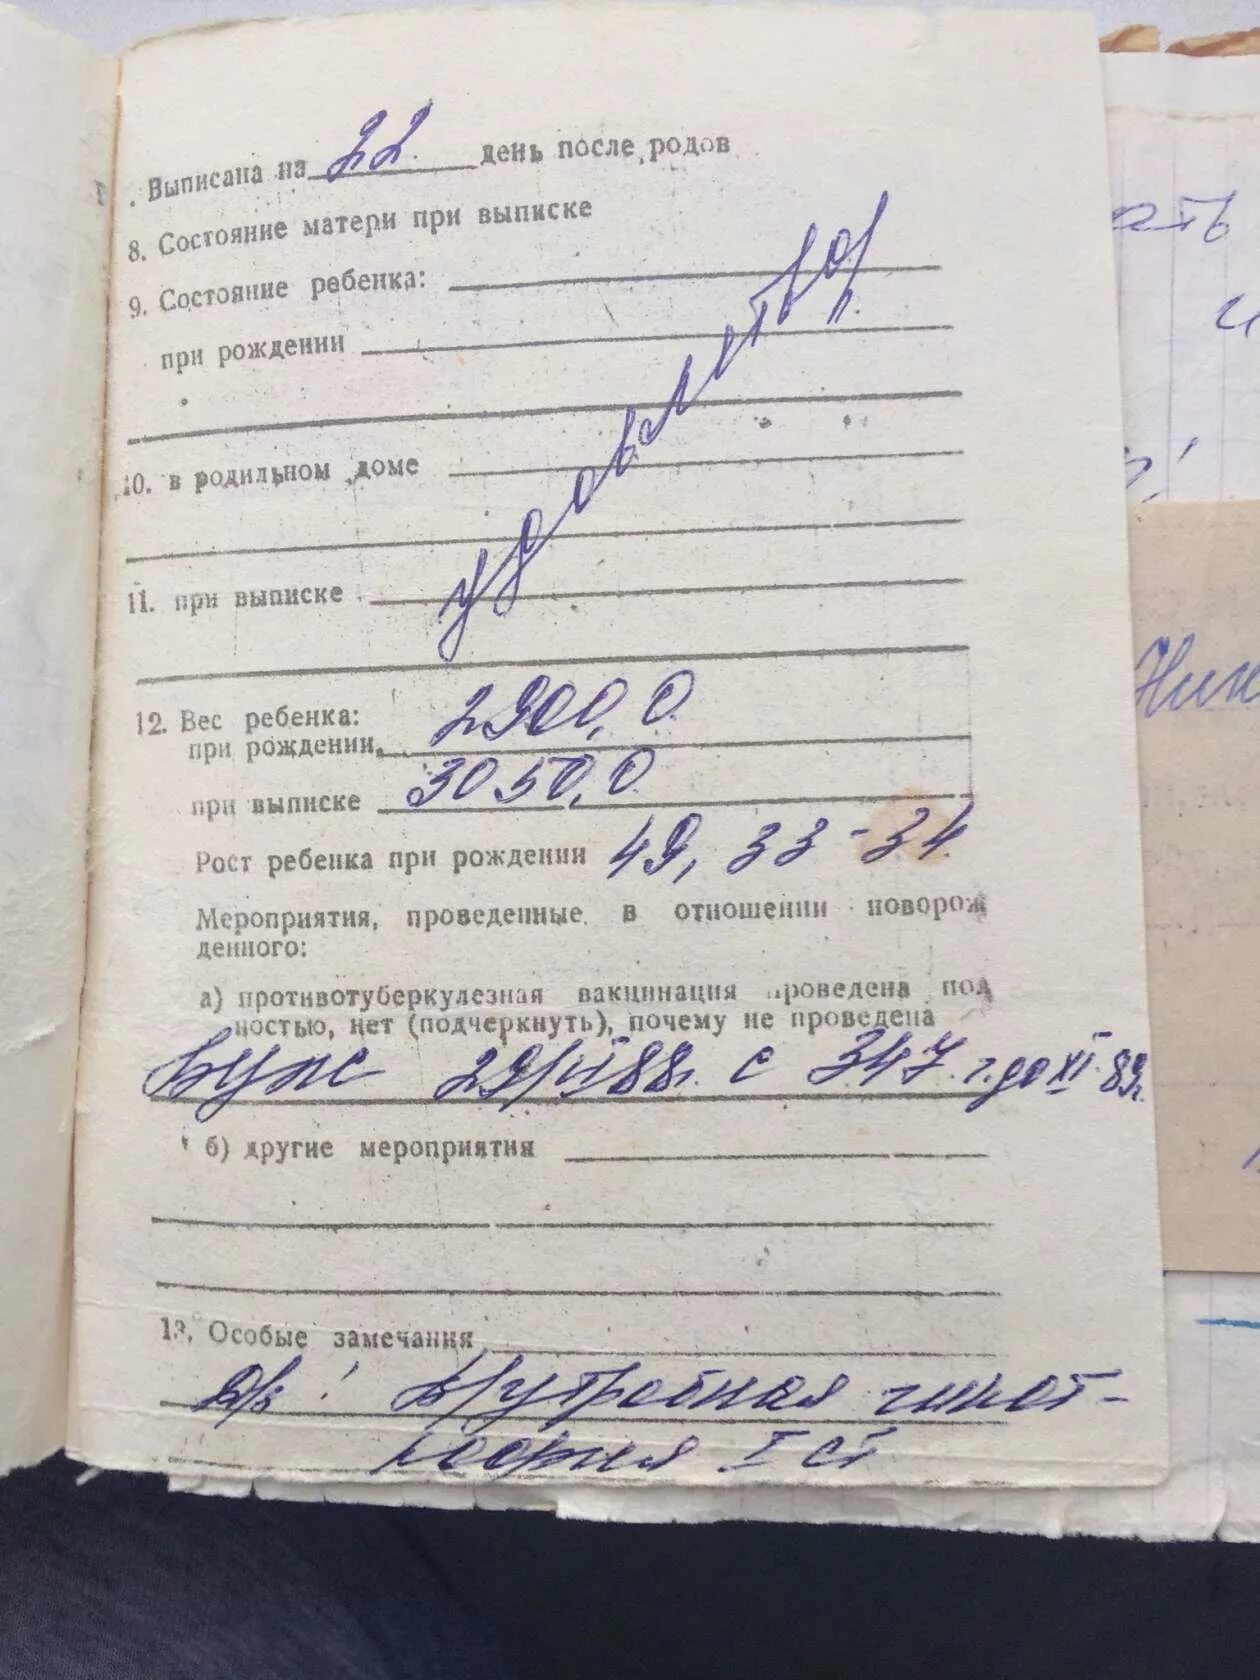 . Выписана на 22. день после родов
8. Состояние матери при выписке
9. Состояние ребенка:
при рождении
удовлетвор.
10. в родильном доме
11. при выписке
12. Вес ребенка:
при рождении 2900,0.
при выписке 3050,0
Рост ребенка при рождении 49, 33-34.
Мероприятия, проведенные в отношении новорож
денного:
а) противотуберкулезная вакцинация проведена пол
ностью, нет (подчеркнуть), почему не проведена
88г. с 347. г. до XI. 89г.
б) другие мероприятия
13. Особые замечания
Д/з: В/утробная гипот-
рофия I ст
ать